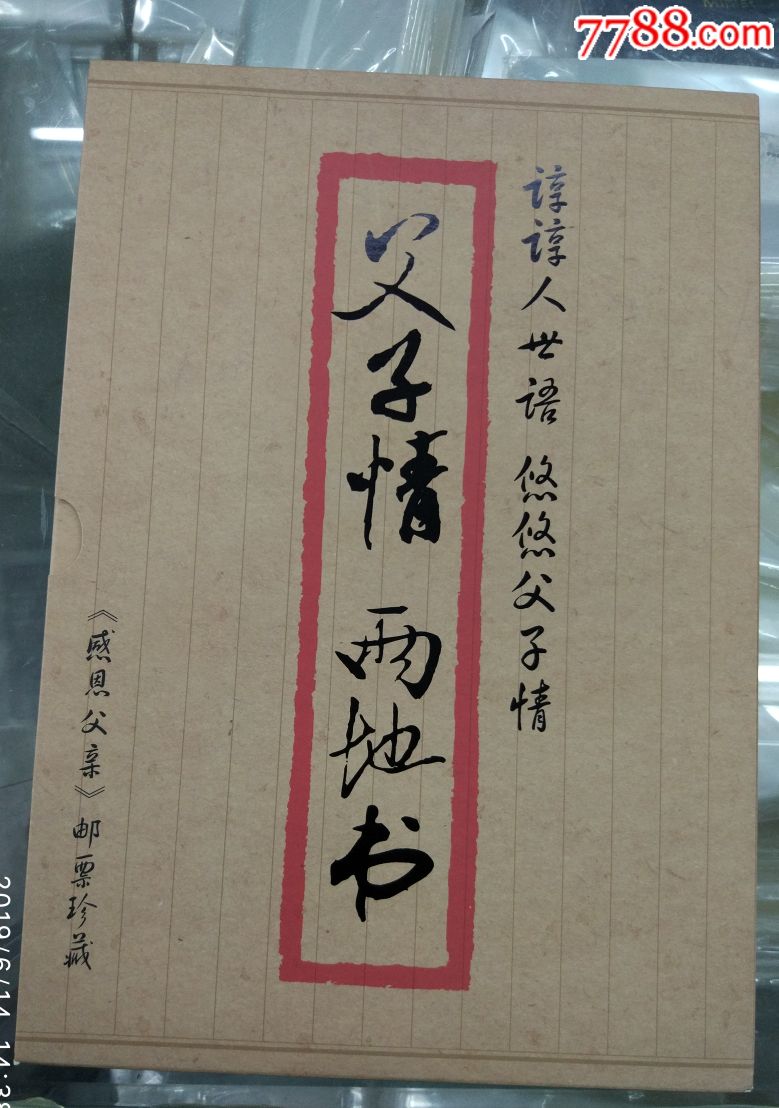 7788.com
谆谆人世语 悠悠父子情
父子情 两地书
《感恩父亲》邮票珍藏
2019/6/14 14:38